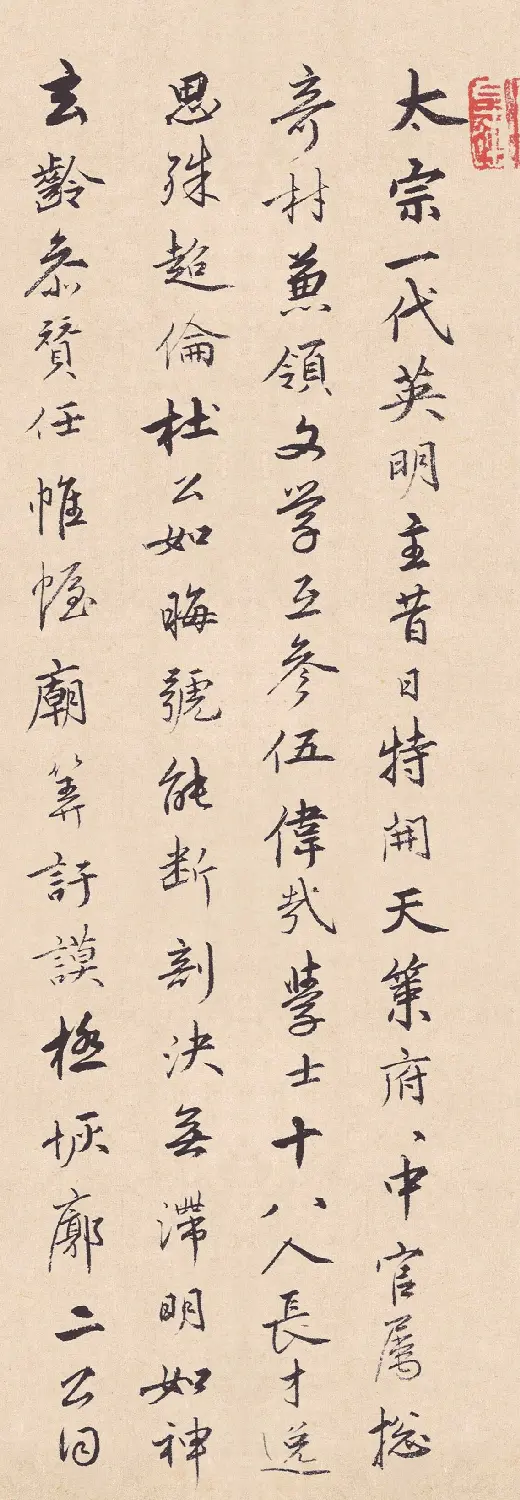 太宗一代英明主昔日特開天策府、中官属捴
奇材兼領文学互參伍偉哉學士十八人長才逸
思殊超倫杜公如晦號能断剖決無滯明如神
玄齡叅賛任帷幄廟筭訏謨極恢廓二公同